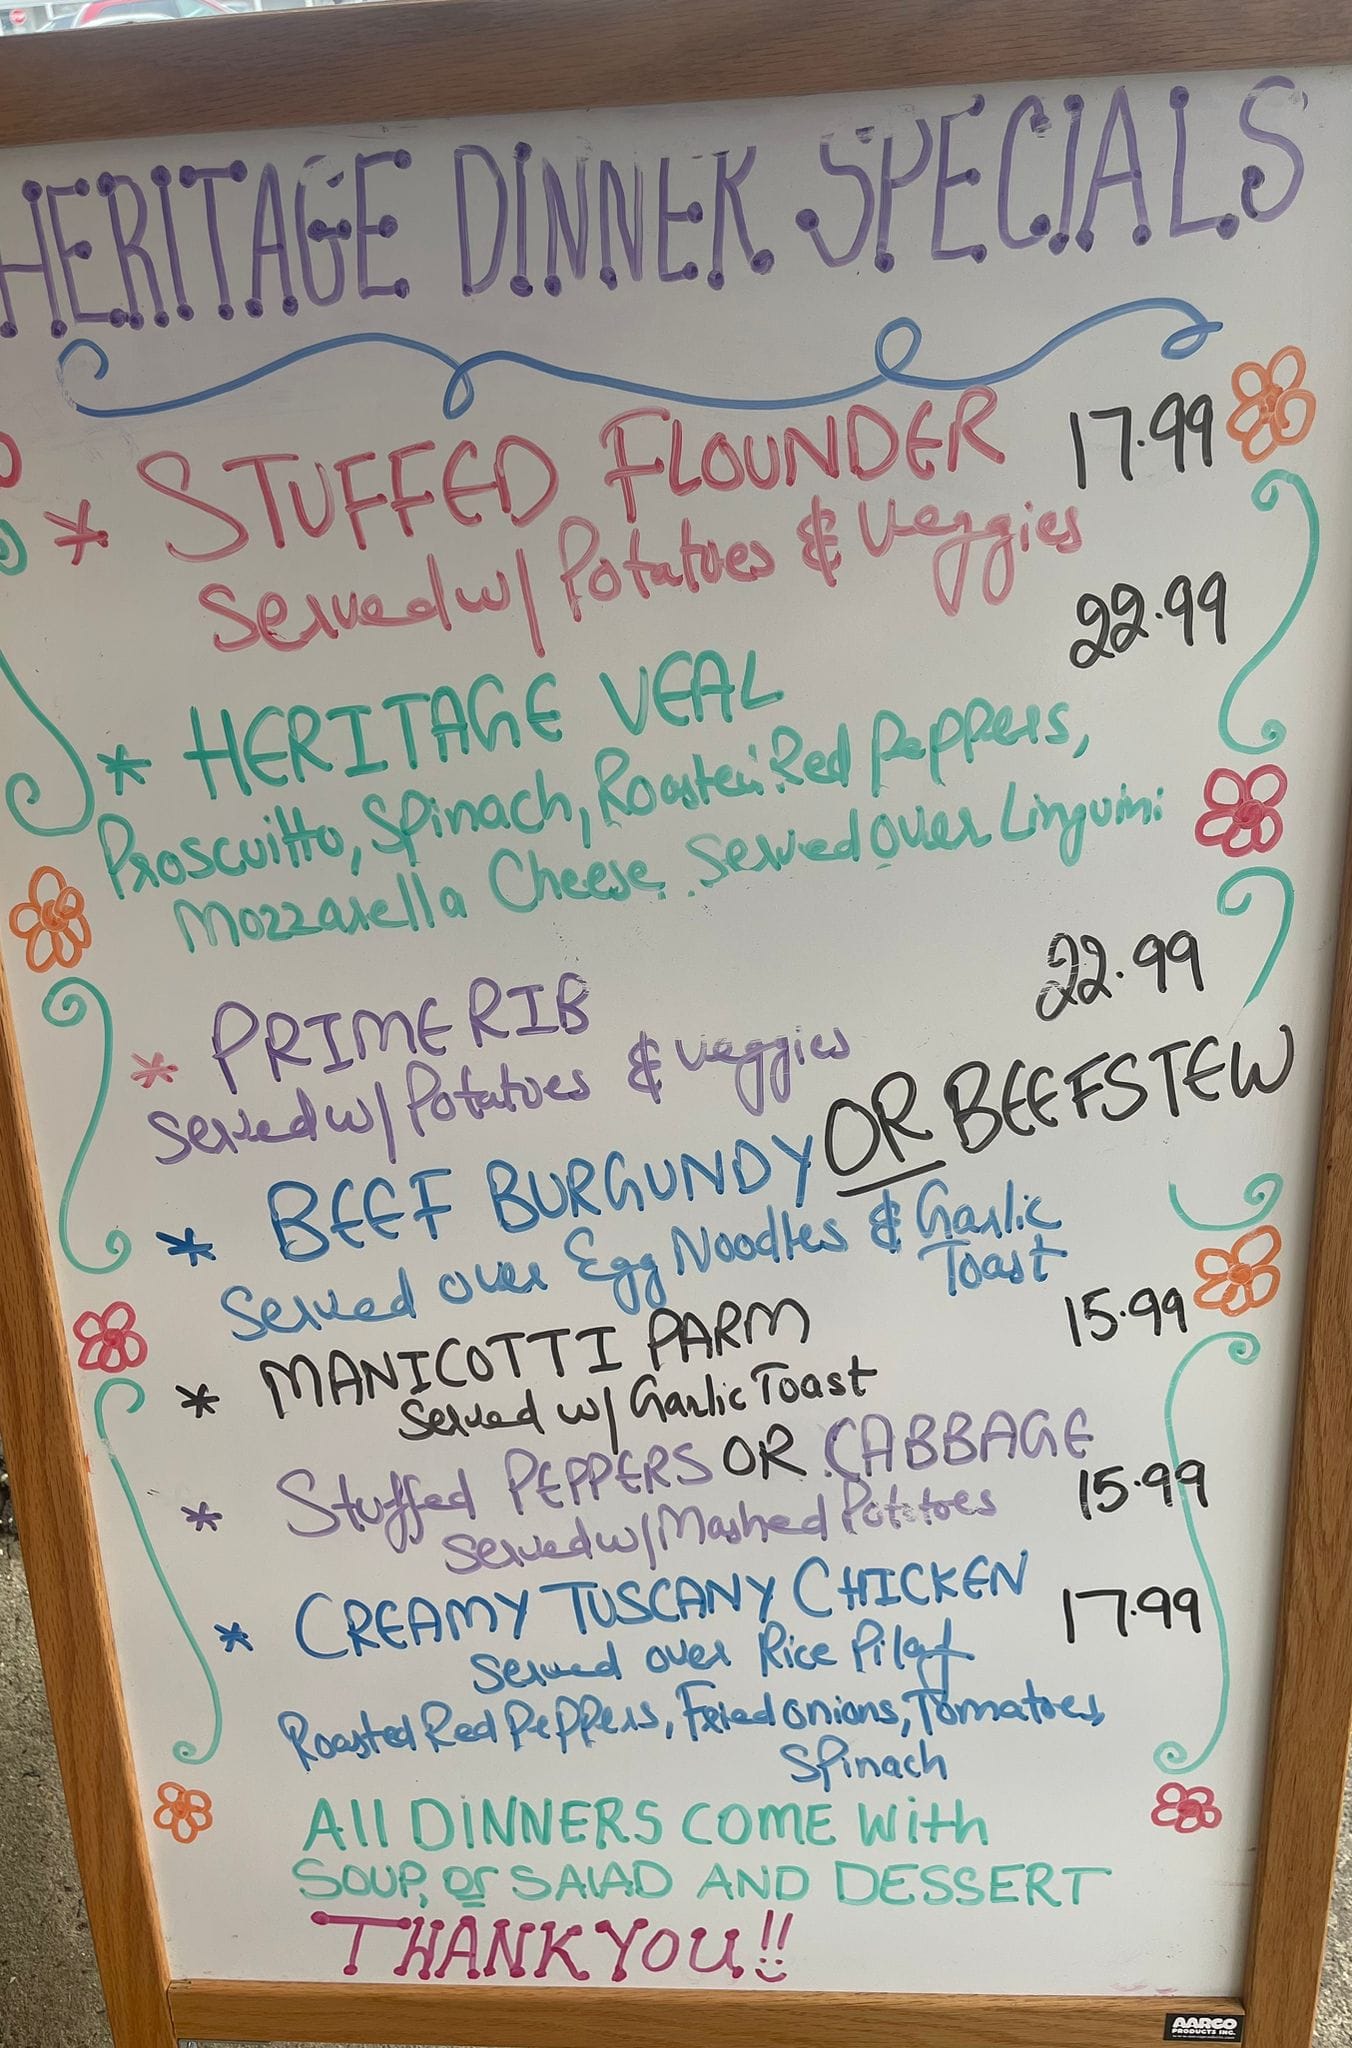 HERITAGE DINNER SPECIALS
* STUFFED FLOUNDER 17.99
Served w/ Potatoes & Veggies
22.99
* HERITAGE VEAL
Proscuitto, Spinach, Roasted Red Peppers,
Mozzarella Cheese. Served over Linguini
22.99
* PRIME RIB
Served w/ Potatoes & Veggies
* BEEF BURGUNDY OR BEEF STEW
Served over Egg Noodles & Garlic
Toast
15.99
* MANICOTTI PARM
Served w/ Garlic Toast
* Stuffed PEPPERS OR CABBAGE
Served w/ Mashed Potatoes 15.99
* CREAMY TUSCANY CHICKEN 17.99
Served over Rice Pilaf
Roasted Red Peppers, Fried onions, Tomatoes,
Spinach
All DINNERS COME With
SOUP, or SALAD AND DESSERT
THANK YOU!!
AARCO
PRODUCTS INC.